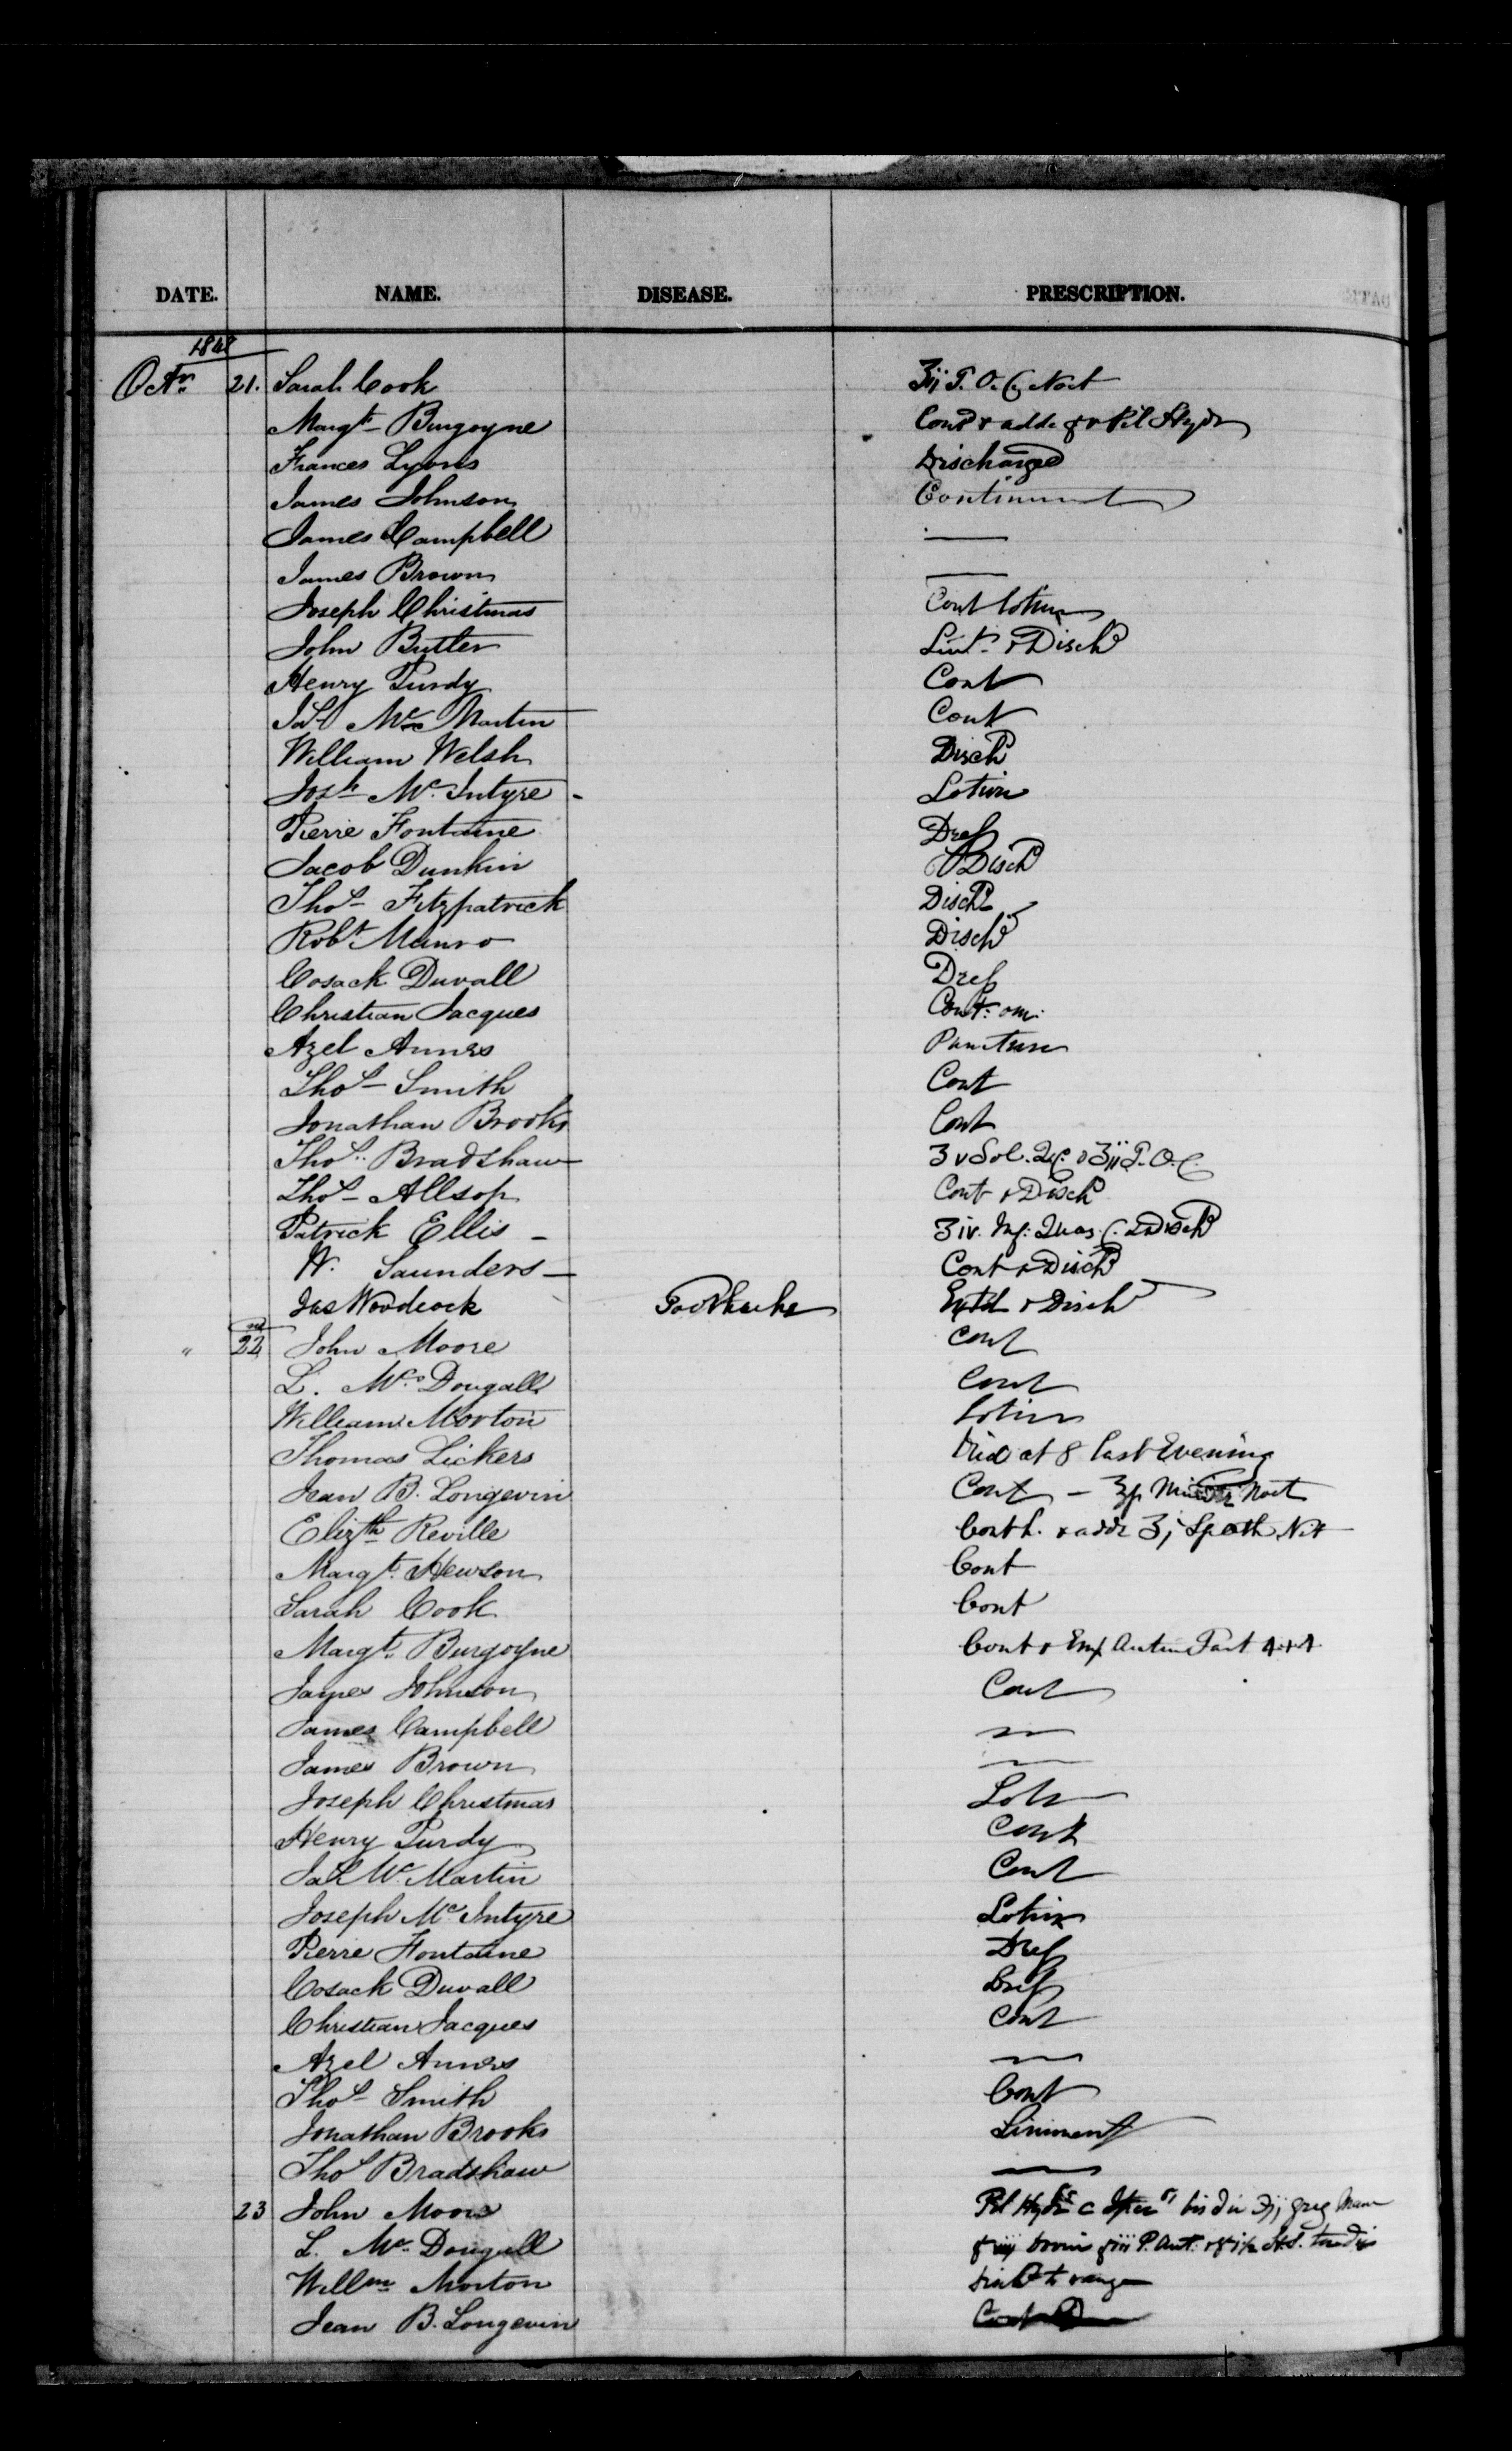 DATE. NAME. DISEASE. PRESCRIPTION.
1848
Octr 21. Sarah Cook ʒij T. O. C. Noct
Margt Burgoyne Cont & adde gr v Pil Hydr
Frances Lyons Discharged
James Johnson Continuent
James Campbell —
James Brown —
Joseph Christmas Cont lotion
John Butler Lint & Dischd
Henry Purdy Cont
Jas McMartin Cont
William Welsh Dischd
Josh McIntyre - Lotion
Pierre Fontaine Dress
Jacob Dunkin Dischd
Thos Fitzpatrick Dischd
Robt Munro Dischd
Cosack Duvall Dress
Christian Jacques Cont. om.
Azel Annes Puncture
Thos Smith Cont
Jonathan Brooks Cont
Thos Bradshaw ʒv Sol. & ʒij T. O. C.
Thos Allsop Cont & Dischd
Patrick Ellis - ʒiv. Inf. Quas. C. & Dischd
W. Saunders — Cont & Dischd
Jas Woodcock Toothache Extd & Dischd
" 22nd John Moore Cont
L. McDougall Cont
William Morton Lotion
Thomas Lickers Died at 8 last Evening
Jean B. Longevin Cont — Noct
Elizth Reville Cont h. & adde ʒj Sp oeth Nit
Margt Hewson Cont
Sarah Cook Cont
Margt Burgoyne Cont & Emp Antim Tart
James Johnson Cont
James Campbell —
James Brown —
Joseph Christmas Lotn
Henry Purdy Cont
Jas McMartin Cont
Joseph McIntyre Lotion
Pierre Fontaine Dress
Cosack Duvall Dress
Christian Jacques Cont
Azel Annes —
Thos Smith Cont
Jonathan Brooks Liniment
Thos Bradshaw —
23 John Moore Pil Hydr c bis die
L. McDougall P. Ant. H.S.
Willm Morton
Jean B. Longevin Cont